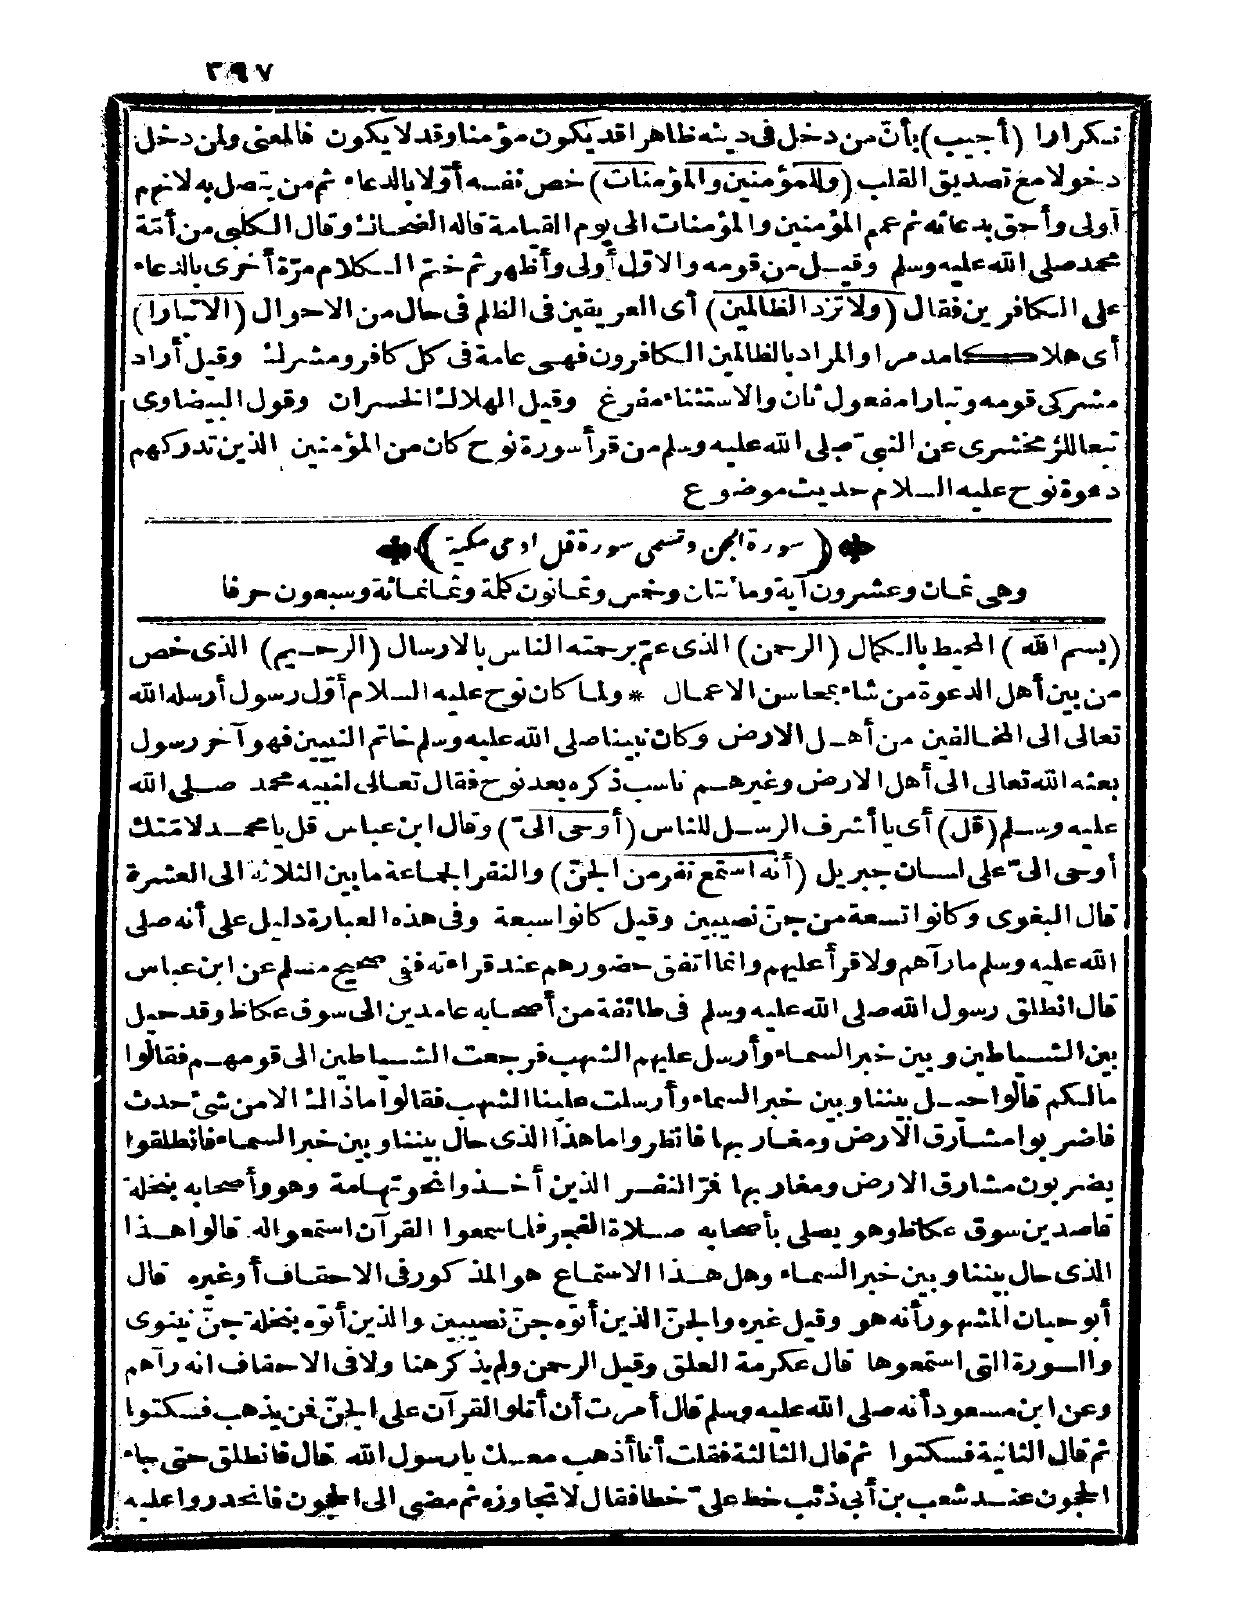 ٣٩٧
تكرارا (أجيب) بأنّ من دخل فى دينه ظاهرا قد يكون مؤمنا وقد لا يكون فالمعنى ولمن دخل
دخولا مع تصديق القلب (وللمؤمنين والمؤمنات) خص نفسه أوّلا بالدعاء ثم من يتصل به لانهم
أولى وأحق بدعائه ثم عمم المؤمنين والمؤمنات الى يوم القيامة قاله الضحاك وقال الكلبى من أمّة
محمد صلى الله عليه وسلم وقيل من قومه والاوّل أولى وأظهر ثم ختم الكلام مرّة أخرى بالدعاء
على الكافرين فقال (ولا تزد الظالمين) أى العريقين فى الظلم فى حال من الاحوال (الاتبارا)
أى هلاكا مدمرا والمراد بالظالمين الكافرون فهى عامة فى كل كافر ومشرك وقيل أراد
مشركى قومه وتبارا مفعول ثان والاستثناء مفرغ وقيل الهلاك الخسران وقول البيضاوى
تبعا للزمخشرى عن النبىّ صلى الله عليه وسلم من قرأ سورة نوح كان من المؤمنين الذين تدركهم
دعوة نوح عليه السلام حديث موضوع
(سورة الجن وتسمى سورة قل اوحى مكية)
وهى ثمان وعشرون آية ومائتان وخمس وثمانون كلمة وثمانمائة وسبعون حرفا
(بسم الله) المحيط بالكمال (الرحمن) الذى عمّ برحمته الناس بالارسال (الرحيم) الذى خص
من بين أهل الدعوة من شاء بمحاسن الاعمال * ولما كان نوح عليه السلام أوّل رسول أرسله الله
تعالى الى المخالفين من أهل الارض وكان نبينا صلى الله عليه وسلم خاتم النبيين فهو آخر رسول
بعثه الله تعالى الى أهل الارض وغيرهم ناسب ذكره بعد نوح فقال تعالى لنبيه محمد صلى الله
عليه وسلم (قل) أى يا أشرف الرسل للناس (أوحى الىّ) وقال ابن عباس قل يا محمد لامّتك
أوحى الىّ على لسان جبريل (أنه استمع نفر من الجنّ) والنفر الجماعة ما بين الثلاثة الى العشرة
قال البغوى وكانوا تسعة من جنّ نصيبين وقيل كانوا سبعة وفى هذه العبارة دليل على أنه صلى
الله عليه وسلم ما رآهم ولا قرأ عليهم وانما اتفق حضورهم عند قراءته ففى صحيح مسلم عن ابن عباس
قال انطلق رسول الله صلى الله عليه وسلم فى طائفة من أصحابه عامدين الى سوق عكاظ وقد حيل
بين الشياطين وبين خبر السماء وأرسل عليهم الشهب فرجعت الشياطين الى قومهم فقالوا
مالكم قالوا حيل بيننا وبين خبر السماء وأرسلت علينا الشهب فقالوا ماذاك الامن شئ حدث
فاضربوا مشارق الارض ومغاربها فانظروا ما هذا الذى حال بيننا وبين خبر السماء فانطلقوا
يضربون مشارق الارض ومغاربها فمرّ النفر الذين أخذوا نحو تهامة وهو وأصحابه بنخلة
قاصدين سوق عكاظ وهو يصلى بأصحابه صلاة الفجر فلما سمعوا القرآن استمعوا له قالوا هذا
الذى حال بيننا وبين خبر السماء وهل هذا الاستماع هو المذكور فى الاحقاف أو غيره قال
أبو حيان المشهور أنه هو وقيل غيره والجنّ الذين أتوه جنّ نصيبين والذين أتوه بنخلة جنّ نينوى
والسورة التى استمعوها قال عكرمة العلق وقيل الرحمن ولم يذكر هنا ولا فى الاحقاف انه رآهم
وعن ابن مسعود أنه صلى الله عليه وسلم قال أمرت أن أتلو القرآن على الجنّ فمن يذهب فسكتوا
ثم قال الثانية فسكتوا ثم قال الثالثة فقلت أنا أذهب معك يا رسول الله قال فانطلق حتى جاء
الحجون عند شعب بن أبى ذئب خط علىّ خطا فقال لا تجاوزه ثم مضى الى الحجون فانحدروا عليه